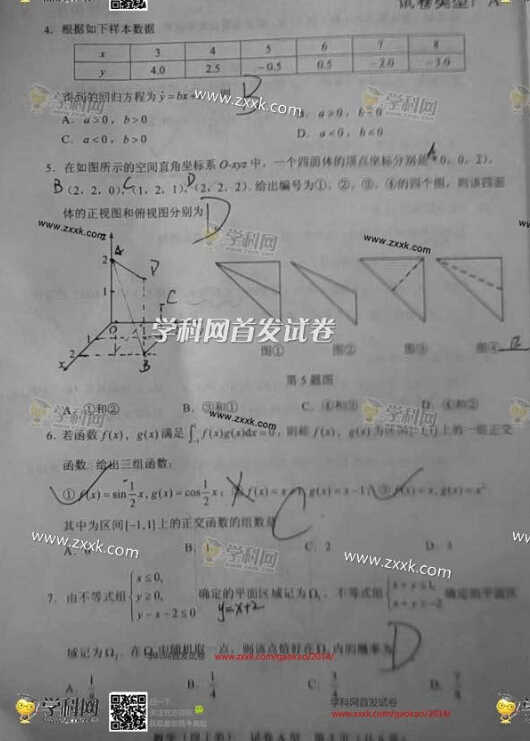 试卷类型：A
4. 根据如下样本数据
x 3 4 5 6 7 8
y 4.0 2.5 -0.5 0.5 -2.0 -3.0
得到的回归方程为ŷ=bx+ 则 B
A. a>0, b>0 B. a>0, b<0
C. a<0, b>0 D. a<0, b<0
5. 在如图所示的空间直角坐标系 O-xyz 中，一个四面体的顶点坐标分别是 A 0, 0, 2),
B (2, 2, 0), C (1, 2, 1), D (2, 2, 2). 给出编号为①、②、③、④的四个图，则该四面
体的正视图和俯视图分别为 D
2 A
1 D
C
O
1
2
x B
图① 图② 图③ 图④ 正
第5题图
A. ①和② B. ③和① C. ④和③ D. ④和②
6. 若函数 f(x), g(x) 满足∫f(x)g(x)dx=0, 则称 f(x), g(x) 为区间[-1,1]上的一组正交
函数. 给出三组函数:
① f(x)=sin 1/2 x, g(x)=cos 1/2 x; f(x)=x g(x)=x-1; ③ f(x)=x, g(x)=x²
其中为区间[-1,1]上的正交函数的组数是 C
A. 0 B. 1 C. 2 D. 3
7. 由不等式组 { x≤0, y≥0, y-x-2≤0 确定的平面区域记为Ω₁, 不等式组 { x+y≤1, x+y≥-2 确定的平面区
y=x+2
域记为Ω₂. 在Ω₁中随机取一点，则该点恰好在Ω₂内的概率为 D
A. 1/8 B. 1/4 C. 3/4 D. 7/8
数学（理工类） 试卷A型
学科网
www.zxxk.com
学科网首发试卷
www.zxxk.com/gaokao/2014/
学科网首发试卷
www.zxxk.com/gaokao/2014/